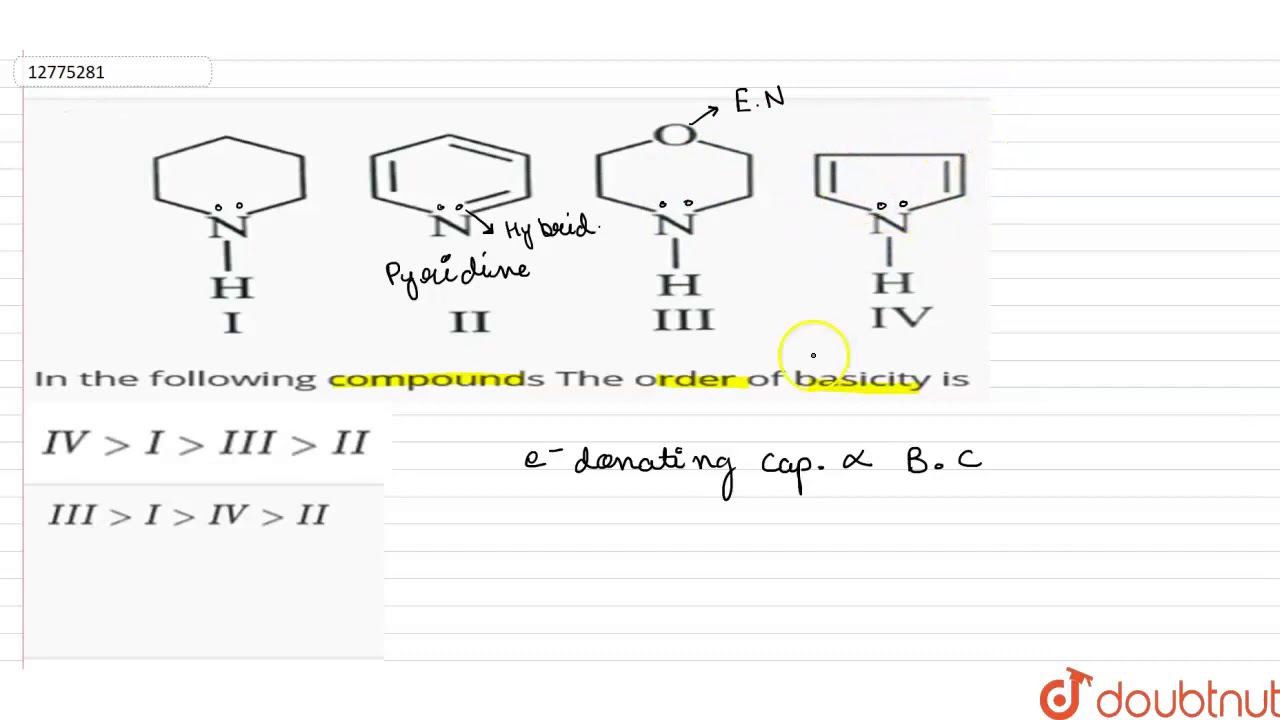 12775281
E.N
O
N N N N
Hybrid.
H H H
Pyridine
I II III IV
In the following compounds The order of basicity is
IV > I > III > II
e⁻ donating cap. ∝ B.C
III > I > IV > II
doubtnut